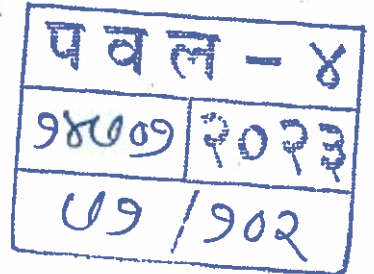 पवल - ४
१४७०१ २०२३
७१ / १०२